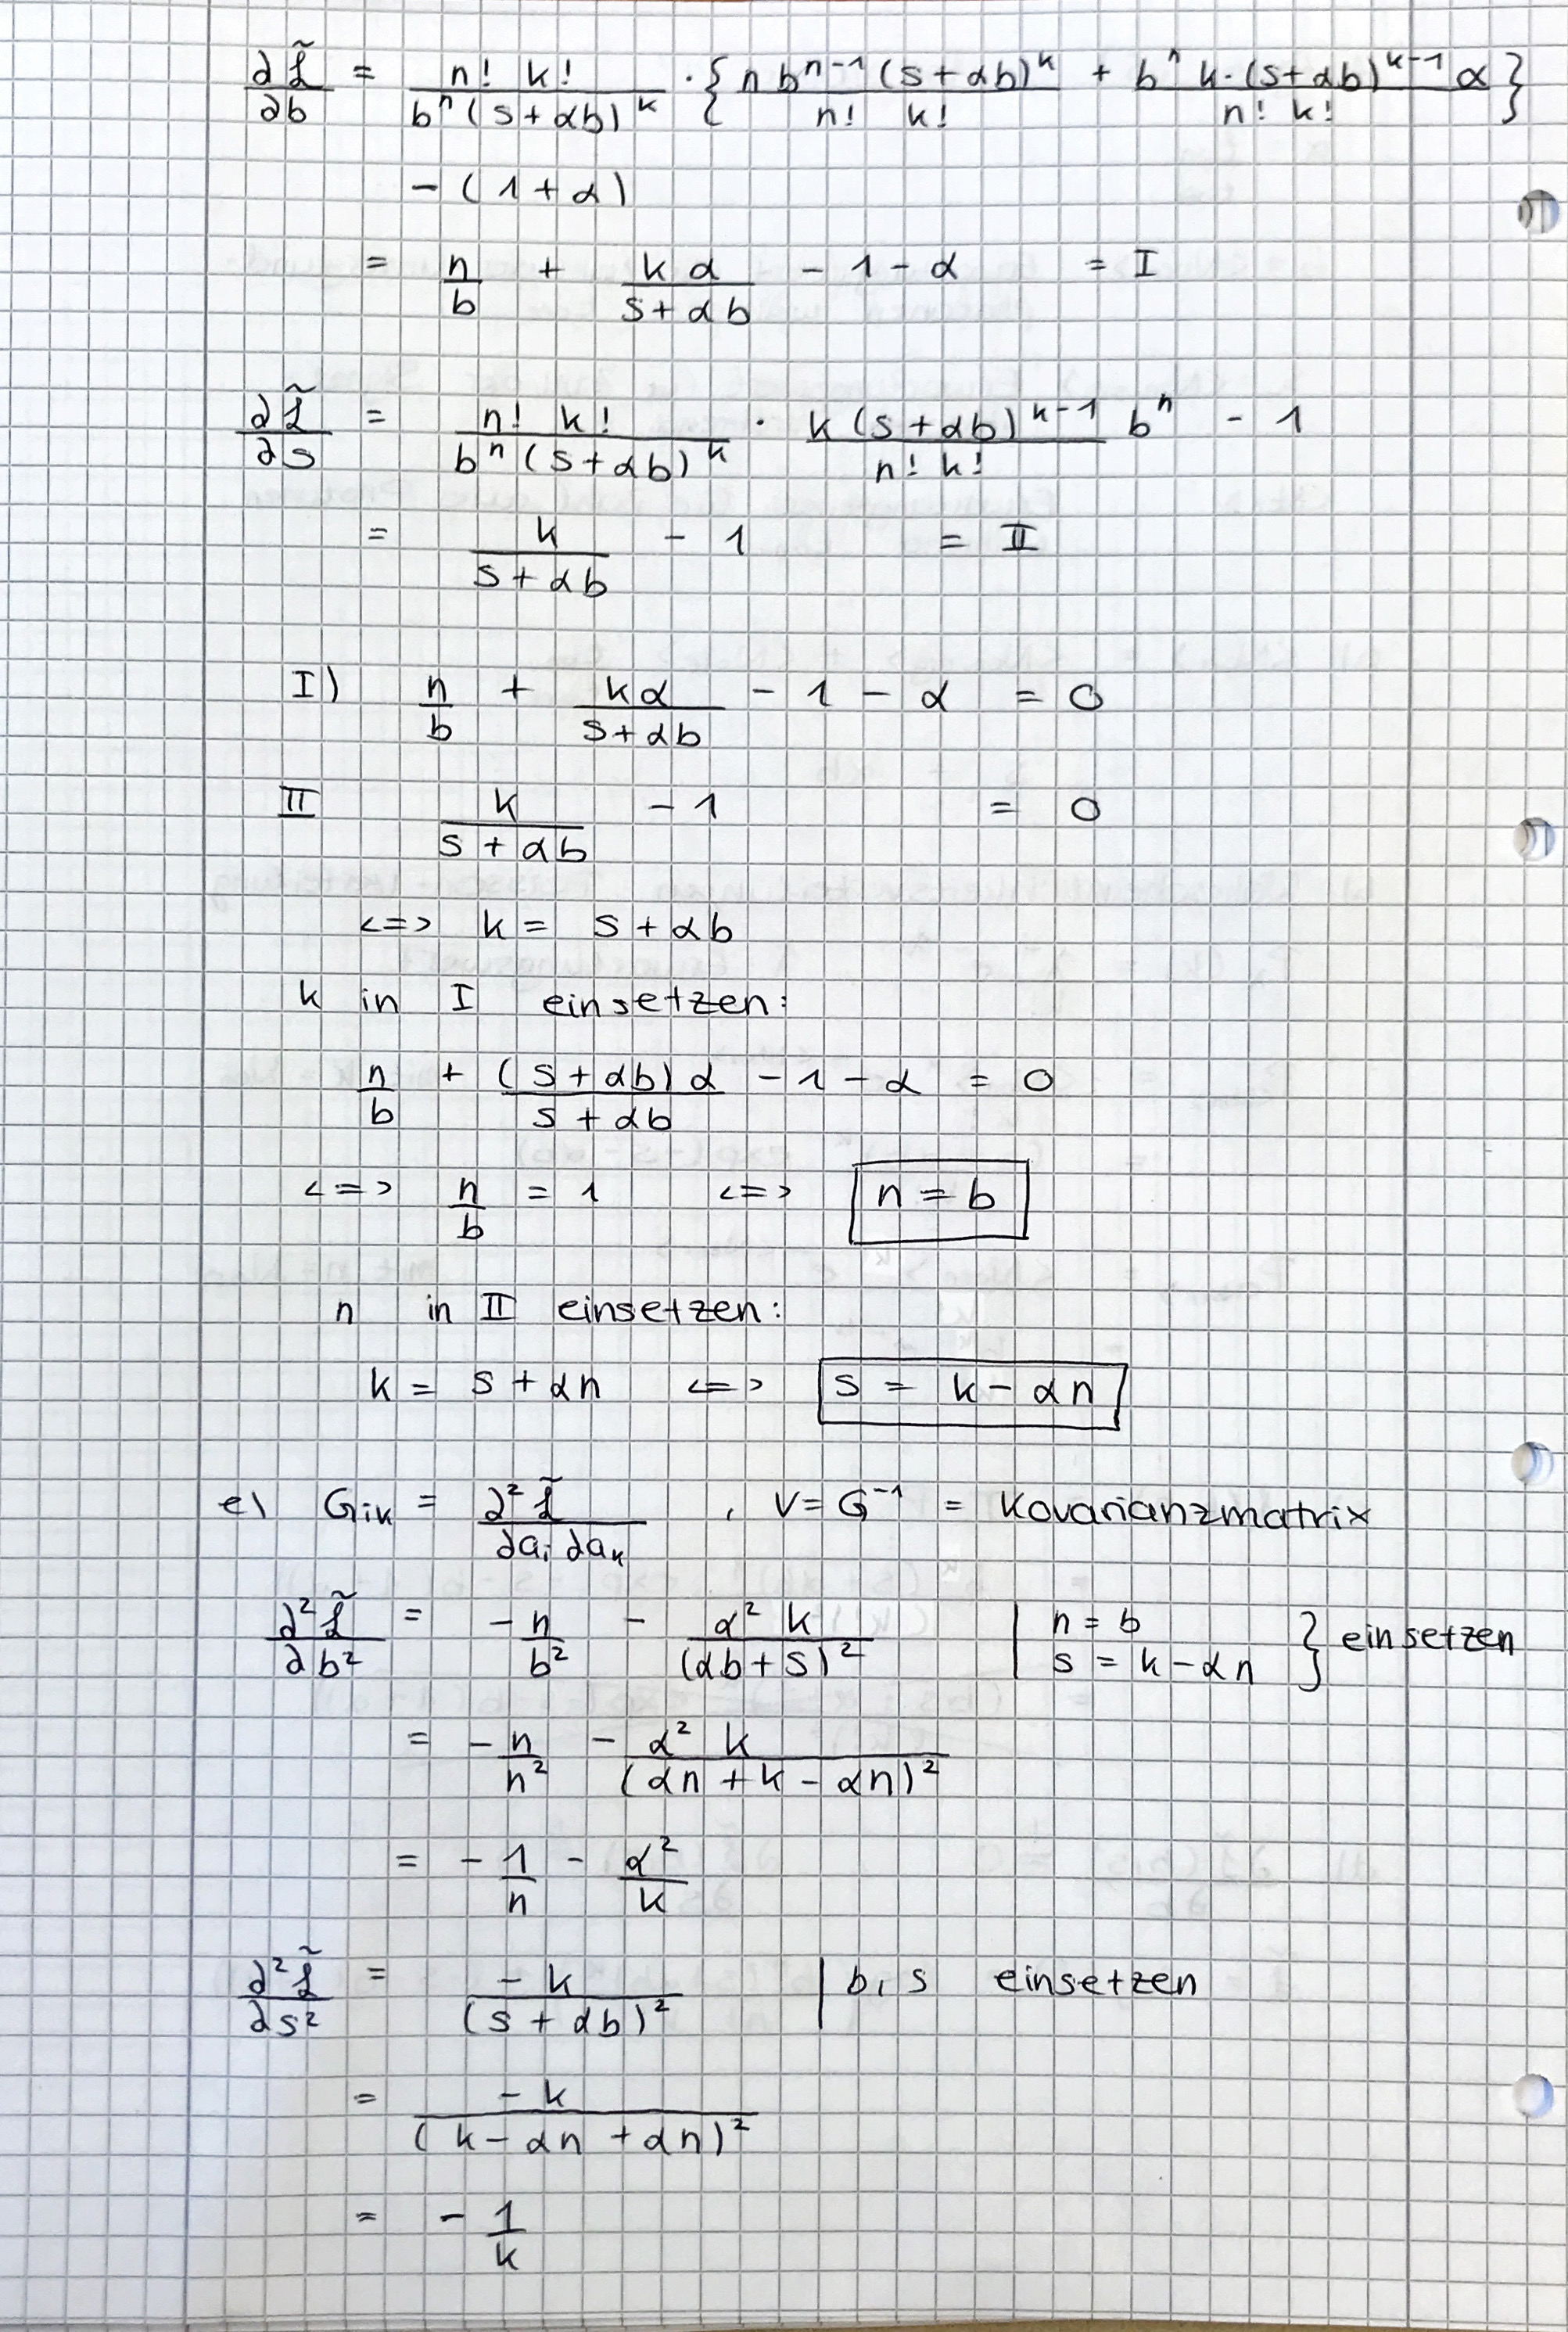 ∂L̃/∂b = n! k!/(bⁿ(s+αb)ᵏ) · { n bⁿ⁻¹(s+αb)ᵏ/(n! k!) + bⁿ k·(s+αb)ᵏ⁻¹ α/(n! k!) }
− (1+α)
= n/b + kα/(s+αb) − 1 − α = I
∂L̃/∂s = n! k!/(bⁿ(s+αb)ᵏ) · k(s+αb)ᵏ⁻¹/(n! k!) bⁿ − 1
= k/(s+αb) − 1 = II
I) n/b + kα/(s+αb) − 1 − α = 0
II k/(s+αb) − 1 = 0
<=> k = s+αb
k in I einsetzen:
n/b + (s+αb)α/(s+αb) − 1 − α = 0
<=> n/b = 1 <=> n = b
n in II einsetzen:
k = s+αn <=> s = k−αn
e) Gᵢₖ = ∂²L̃/(∂aᵢ ∂aₖ) , V = G⁻¹ = Kovarianzmatrix
∂²L̃/∂b² = −n/b² − α² k/(αb+s)² | n = b s = k−αn } einsetzen
= −n/n² − α² k/(αn+k−αn)²
= −1/n − α²/k
∂²L̃/∂s² = −k/(s+αb)² | b, s einsetzen
= −k/(k−αn+αn)²
= −1/k